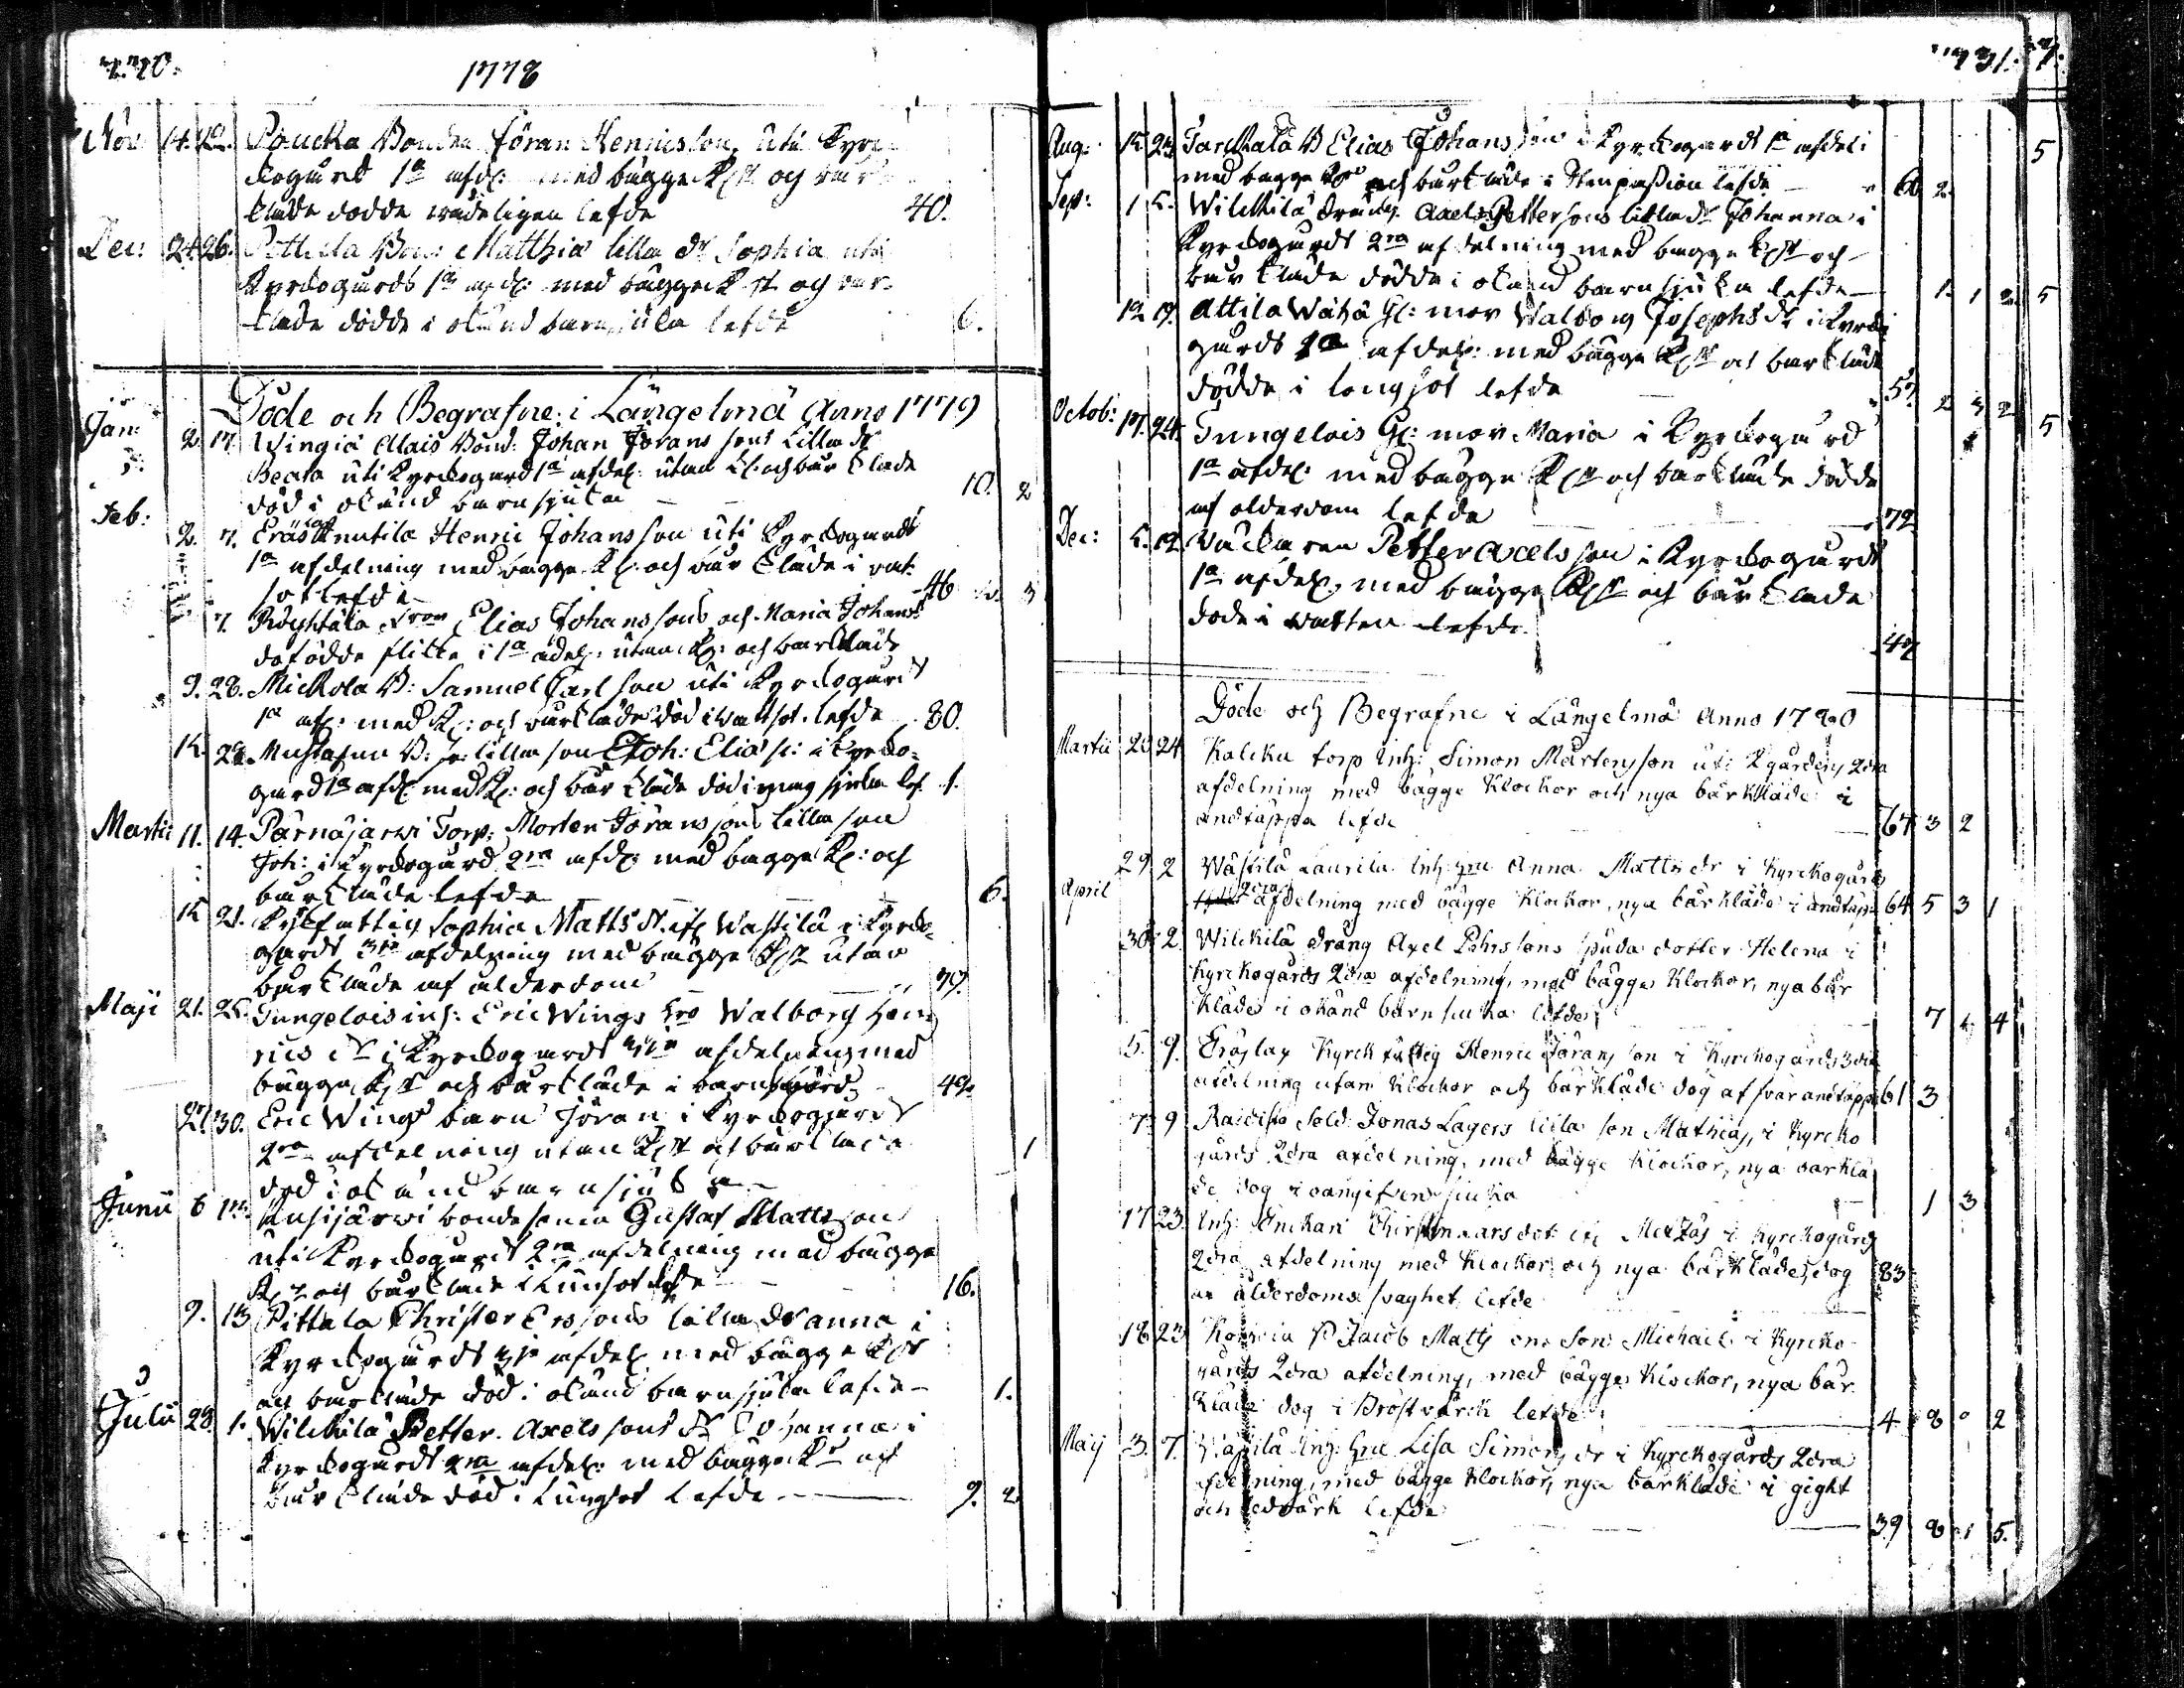 1778
Nov 14. 22. Poucka Bonden Jöran Hennisson, uti Kyrc-
kogurd 1a afd: med bägge Kl: och bår
kläde dödde wadeligen lefde 40.
Dec: 24. 26. Pethila Bon: Matthiæ lilla dr Sophia uti
Kyrkogurds 1a afd: med bägge Kl: och bår
kläde dödde i okänd barnsjuka lefde 6.
Döde och Begrafne i Längelmä Anno 1779
Jan: 2. 17. Wingiä Alais Bond: Johan Jörans sons Lilla dr
Beata uti Kyrkogard 1a afdel: utan Kl: och bår kläde
död i okänd barnsjuka 10. 2
Feb: 2. 7. Eräs Knutila Henric Johansson uti Kyrkogards
1a afdelning med bägge Kl: och bår kläde i
sot lefde 46 3
7. Röyhkälä Elias Johanssons och Maria Johans
dofödde flicka i 1a afdel: utan Kl: och barkläde
9. 28. Mickola B: Samuel Carlson uti Kyrkogard
1a af: med Kl: och barkläde död i wattsot. lefde 30.
lilla son Joh: Elias s: i Kyrko-
gard 1a afd: med Kl: och bår kläde död i sjuka lef. 1.
Martii 11. 14. Pärnäjarwi Torp: Morten Jöransons Lilla son
Joh: i Kyrkogurd 2ra afd: med bägge Kl: och
bar kläde lefde 6.
15 21. Kyrkfattig Sophia Matts dr ifr Wästilä i Kyrko-
gards 3je afdelning med bägge Kl: utan
bar kläde af ålderdom 79.
Maji 21. 25. Jungelois inh: Eric Wings hro Walborg Hen
rics dr i Kyrkogards afdelning med
bägge Kl: och barkläde i barnsbörd 42.
27. 30. Eric Wings barn Jöran i Kyrkogard
2ra afdelning utan Kl: och barkläde
död i okänd barnsjuka 1
Junii 6 13. bondesonen Gustaf Mattson
uti Kyrkogurd 2ra afdelning med bägge
Kl: och barkläde i Lungsot lefde 16.
9. 13 Pittala Christer Erssons lilla dr Anna i
Kyrkogards afdel: med bägge Kl:
och barkläde död i okänd barnsjuka lefde 1.
Julii 28. 1. Wilckilä Petter Axels sons dr Johanna i
Kyrkogards 2ra afdel: med bägge Kl: och
bar kläde död i Lungsot Lefde 9. 2
731.
Aug: 15. 23. Jarckala B Elias Johansson i Kyrkogards 1a afdel:
med bägge Kl: och barkläde i Stenpassion lefde 60 2. 5
Sep: 1 5. Wilckilä dräng Axel Pettersons lilla dr Johanna i
Kyrkogurds 2ra afdelning med bägge Kl: och
bar kläde dödde i okänd barnsjuka lefde 1. 1 2 5
12 19. Attila Wähä Gl: mor Walborg Josephs dr i Kyrko
gurds 1a afdel: med bägge Kl: och barkläde
dödde i longsot lefde 57. 2 3 2 5
Octob: 17. 24. Jungelois Gl: mor Maria i Kyrkogurd
1a afdel: med bägge Kl: och barkläde dödde
af olderdom lefde 72
Dec: 5. 12. Petter Axelsson i Kyrkogurds
1a afdel: med bägge Kl: och bar kläde
döde i watten lefde. 47
Döde och Begrafne i Längelmä Anno 1780
Martii 20 24. Kalcku torp Inh: Simon Mårtensson uti Kgårdens 2dra
afdelning med bägge Klockor och nya bårkläde i
andtäppa lefde 67 3 2
29 2 Wästilä Laurila Inh: hru Anna Matts dr i Kyrckogårds
April 2dra afdelning med bägge Klockor, nya bårkläde i andtäppa 64 5 3 1
30 2. Wilckilä dräng Axel Pehrssons spuda dotter Helena i
Kyrckogårds 2dra afdelning, med bägge Klockor, nya bår
kläde i okänd barnsjuka lefde 7 4
5. 9. Eräslax Kyrckfattig Henric Jöransson i Kyrckogårds 3dra
afdelning utan Klockor och bårkläde dog af svår andtäppa 61 3
7. 9 Raidisto Sold: Jonas Lagers lilla son Mathias, i Kyrcko
gårds 2dra afdelning, med bägge Klockor, nya bårklä
de dog i oangifven siuka 1 3
17 23. Inh: Enckan Christin Larsdot: ifr Mexzäs i Kyrckogårds
2dra afdelning med Klockor och nya bårkläde, dog 83
af ålderdoms svaghet lefde
18 23 B Jacob Matts ons son Michael i Kyrcko
gårds 2dra afdelning, med bägge Klockor, nya bår
kläde dog i Bröstvärck lefde 4 8 0 2
Maij 3. 7. Wästilä Inh: hru Lisa Simons dr i Kyrckogårds 2dra
afdelning, med bägge Klockor, nya bårkläde i gight
och ledvärk lefde 39 8 1 5.